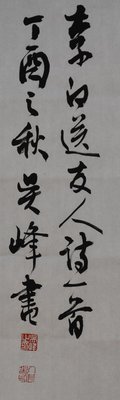 李白送友人诗一首
丁酉之秋吴峰书